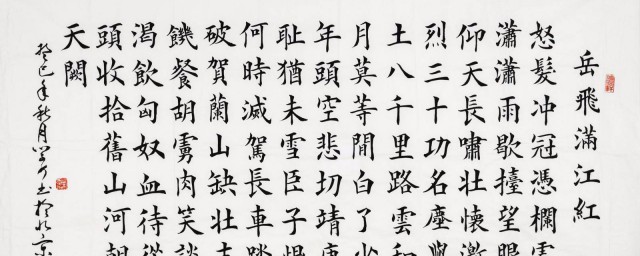 岳飛滿江紅
怒髮冲冠憑欄處
瀟瀟雨歇擡望眼
仰天長嘯壯懷激
烈三十功名塵與
土八千里路雲和
月莫等閒白了少
年頭空悲切靖康
耻猶未雪臣子恨
何時滅駕長車踏
破賀蘭山缺壯志
饑餐胡虜肉笑談
渴飲匈奴血待從
頭收拾舊山河朝
天闕
癸巳年秋月书於北京